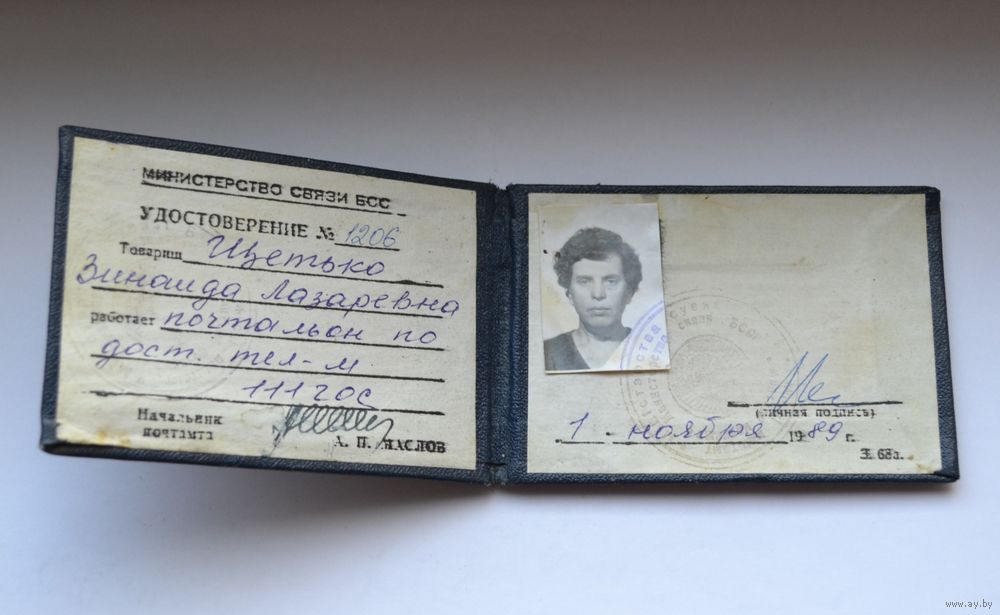 МИНИСТЕРСТВО СВЯЗИ БСС
УДОСТОВЕРЕНИЕ № 1206
Товарищ Щетько
Зинаида Лазаревна
работает почтальон по
дост. тел-м
111 гос
Начальник
почтамта
А. П. МАСЛОВ
(личная подпись)
1 ноября 1989 г.
З. 68з.
www.ay.by